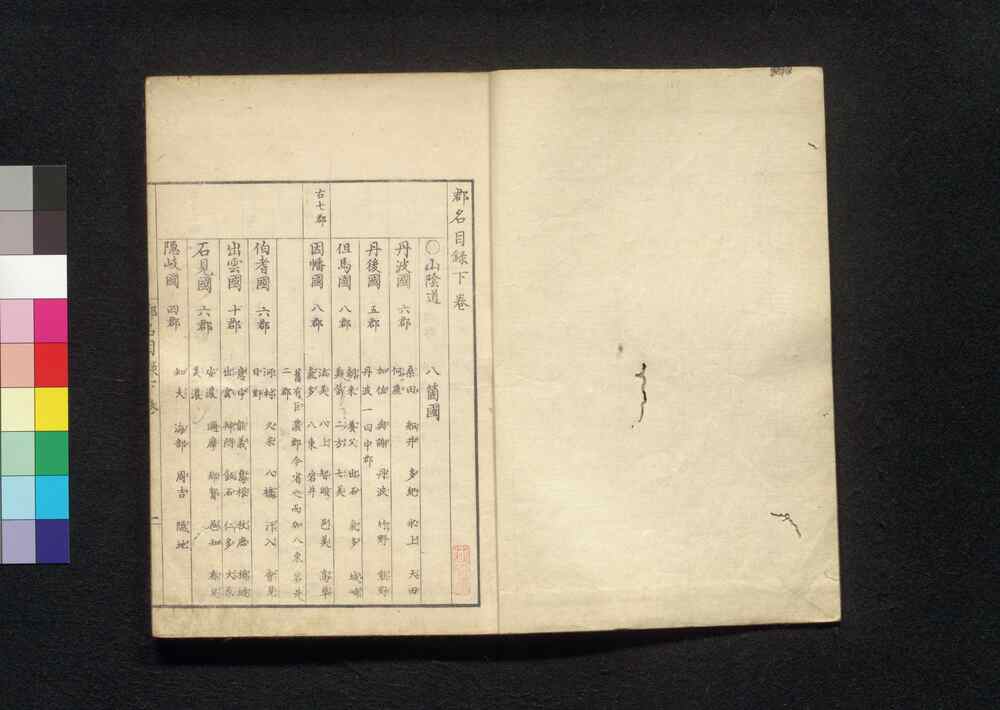 郡名目録下卷
〇山陰道 八箇國
丹波國 六郡 桑田 舩井 多紀 氷上 天田
何鹿
丹後國 五郡 加佐 與謝 丹波 竹野 熊野
丹波一曰中郡
但馬國 八郡 朝來 養父 出石 氣多 城崎
美含 二方 七美
古七郡
因幡國 八郡 法美 八上 智頭 邑美 高草
氣多 八東 岩井
舊有巨農郡今省之而加八東岩井
二郡
伯耆國 六郡 河村 久米 八橋 汗入 會見
日野
出雲國 十郡 意宇 能義 嶋根 秋鹿 楯縫
出雲 神門 飯石 仁多 大原
石見國 六郡 安濃 邇摩 那賀 邑知
美濃
隠岐國 四郡 知夫 海部 周吉 隠地
郡名目録下卷 一